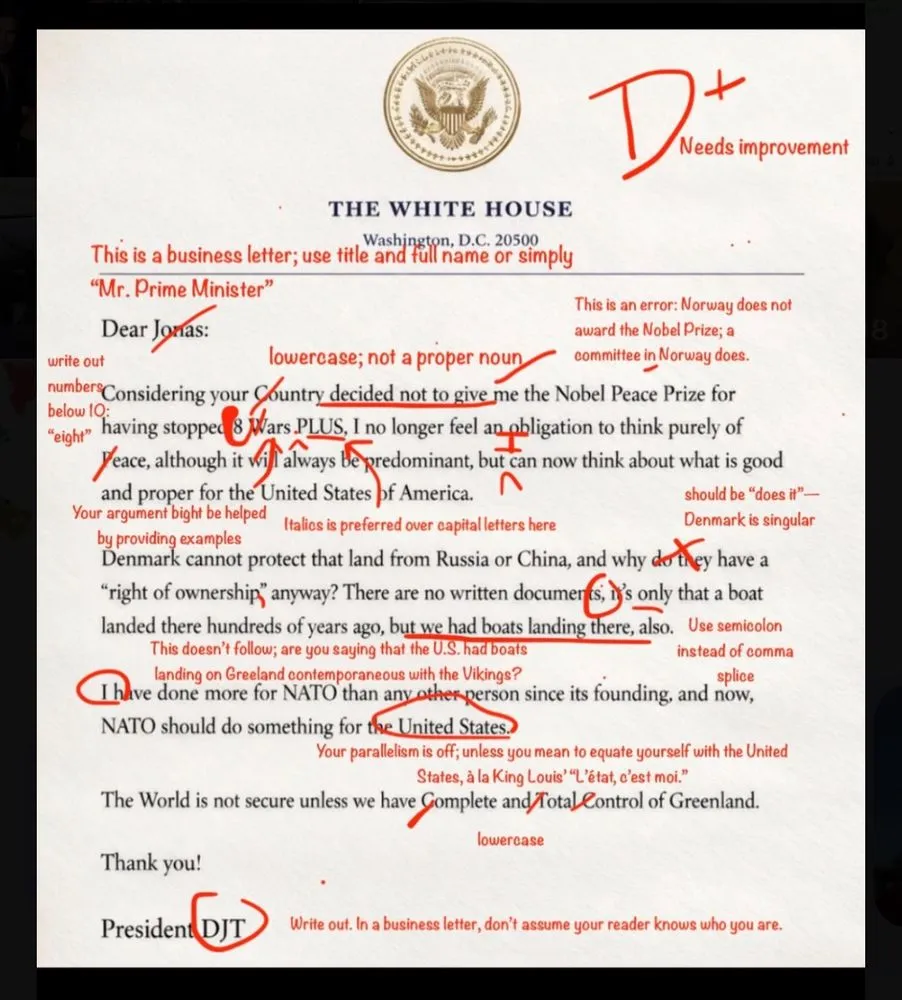 D+
Needs improvement
THE WHITE HOUSE
Washington, D.C. 20500
This is a business letter; use title and full name or simply
“Mr. Prime Minister”
Dear Jonas:
This is an error: Norway does not
award the Nobel Prize; a
committee in Norway does.
lowercase; not a proper noun
write out
numbers
below 10:
“eight”
Considering your Country decided not to give me the Nobel Peace Prize for
having stopped 8 Wars PLUS, I no longer feel an obligation to think purely of
Peace, although it will always be predominant, but can now think about what is good
I
and proper for the United States of America.
Your argument bight be helped
by providing examples
Italics is preferred over capital letters here
should be “does it”—
Denmark is singular
Denmark cannot protect that land from Russia or China, and why do they have a
“right of ownership” anyway? There are no written documents, it’s only that a boat
landed there hundreds of years ago, but we had boats landing there, also.
Use semicolon
instead of comma
splice
This doesn’t follow; are you saying that the U.S. had boats
landing on Greeland contemporaneous with the Vikings?
I have done more for NATO than any other person since its founding, and now,
NATO should do something for the United States.
Your parallelism is off; unless you mean to equate yourself with the United
States, à la King Louis’ “L’état, c’est moi.”
The World is not secure unless we have Complete and Total Control of Greenland.
lowercase
Thank you!
President DJT
Write out. In a business letter, don’t assume your reader knows who you are.